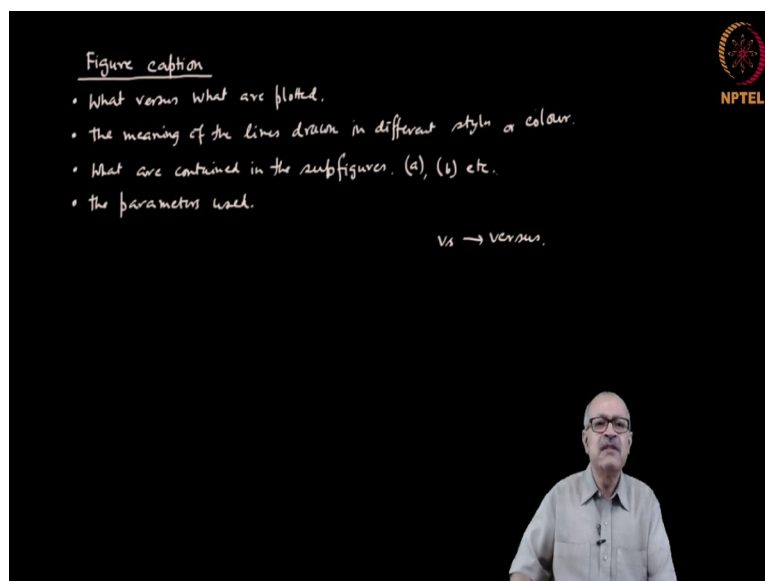 Figure caption
NPTEL
• What versus what are plotted.
• the meaning of the lines drawn in different style or colour.
• What are contained in the subfigures. (a), (b) etc.
• the parameters used.
vs → versus.